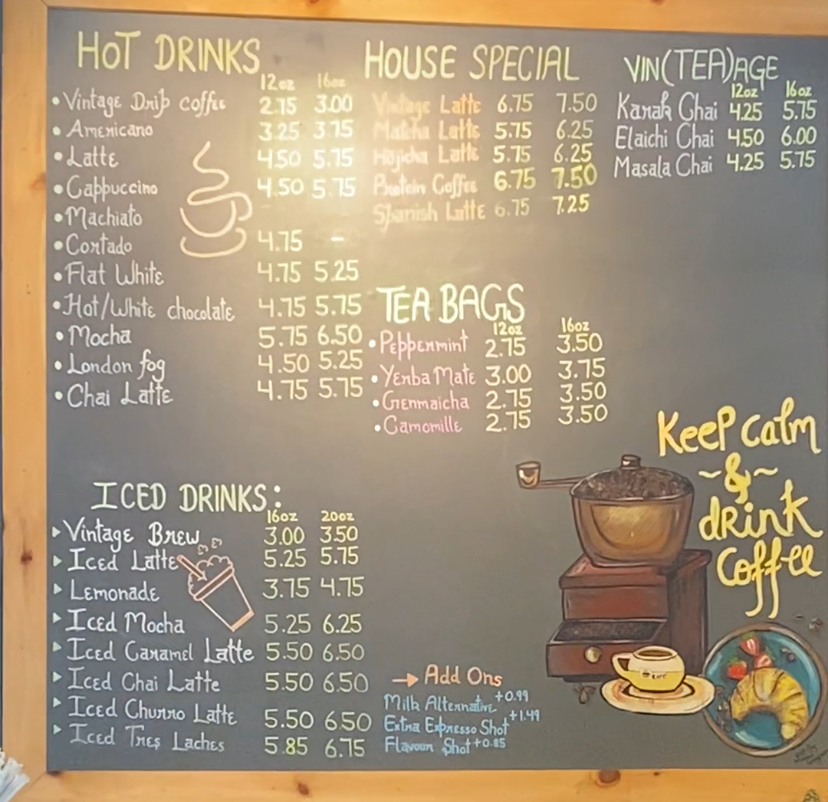 HOT DRINKS
12oz 16oz
• Vintage Drip coffee 2.75 3.00
• Americano 3.25 3.75
• Latte 4.50 5.75
• Cappuccino 4.50 5.75
• Machiato
• Cortado 4.75 -
• Flat White 4.75 5.25
• Hot/White chocolate 4.75 5.75
• Mocha 5.75 6.50
• London fog 4.50 5.25
• Chai Latte 4.75 5.75
HOUSE SPECIAL
Vintage Latte 6.75 7.50
Matcha Latte 5.75 6.25
Hojicha Latte 5.75 6.25
Protein Coffee 6.75 7.50
Spanish Latte 6.75 7.25
VIN(TEA)AGE
12oz 16oz
Karak Chai 4.25 5.75
Elaichi Chai 4.50 6.00
Masala Chai 4.25 5.75
TEA BAGS
12oz 16oz
• Peppermint 2.75 3.50
• Yerba Mate 3.00 3.75
• Genmaicha 2.75 3.50
• Camomille 2.75 3.50
ICED DRINKS:
16oz 20oz
Vintage Brew 3.00 3.50
Iced Latte 5.25 5.75
Lemonade 3.75 4.75
Iced Mocha 5.25 6.25
Iced Caramel Latte 5.50 6.50
Iced Chai Latte 5.50 6.50
Iced Churro Latte 5.50 6.50
Iced Tres Laches 5.85 6.75
→ Add Ons
Milk Alternative +0.99
Extra Expresso Shot +1.49
Flavour Shot +0.85
Keep calm
~&~
drink
Coffee